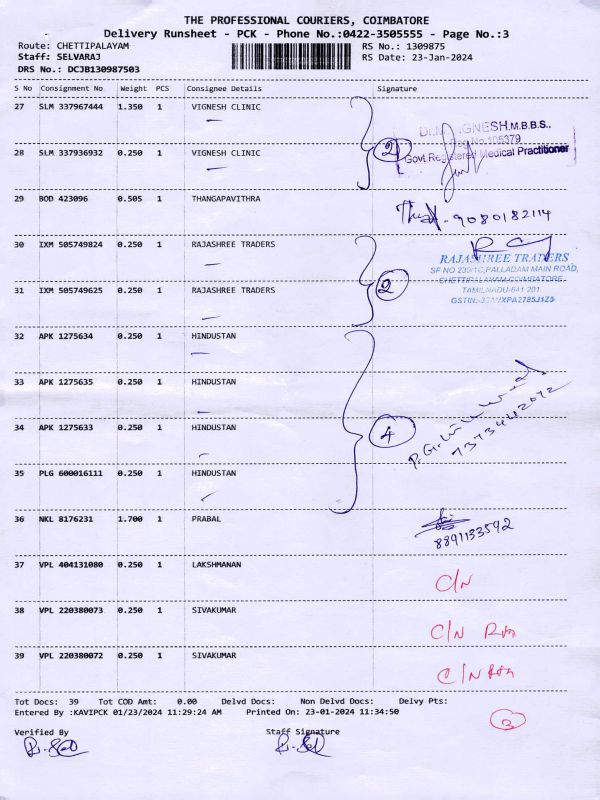 THE PROFESSIONAL COURIERS, COIMBATORE
Delivery Runsheet - PCK - Phone No.:0422-3505555 - Page No.:3
Route: CHETTIPALAYAM RS No.: 1309875
Staff: SELVARAJ RS Date: 23-Jan-2024
DRS No.: DCJB130987503
S No Consignment No Weight PCS Consignee Details Signature
27 SLM 337967444 1.350 1 VIGNESH CLINIC
28 SLM 337936932 0.250 1 VIGNESH CLINIC
2
GNESH, M.B.B.S.,
Reg.No.105379
Govt.Registered Medical Practitioner
29 BOD 423096 0.505 1 THANGAPAVITHRA
9080182114
30 IXM 505749824 0.250 1 RAJASHREE TRADERS
31 IXM 505749625 0.250 1 RAJASHREE TRADERS
2
RAJASHREE TRADERS
SF NO 230/1C, PALLADAM MAIN ROAD,
CHETTIPALAYAM, COIMBATORE
TAMILNADU-641 201.
32 APK 1275634 0.250 1 HINDUSTAN
33 APK 1275635 0.250 1 HINDUSTAN
34 APK 1275633 0.250 1 HINDUSTAN
35 PLG 600016111 0.250 1 HINDUSTAN
4
7373442072
36 NKL 8176231 1.700 1 PRABAL
8891133592
37 VPL 404131080 0.250 1 LAKSHMANAN
C/N
38 VPL 220380073 0.250 1 SIVAKUMAR
C/N
39 VPL 220380072 0.250 1 SIVAKUMAR
C/N
Tot Docs: 39 Tot COD Amt: 0.00 Delvd Docs: Non Delvd Docs: Delvy Pts:
Entered By :KAVIPCK 01/23/2024 11:29:24 AM Printed On: 23-01-2024 11:34:50
3
Verified By Staff Signature